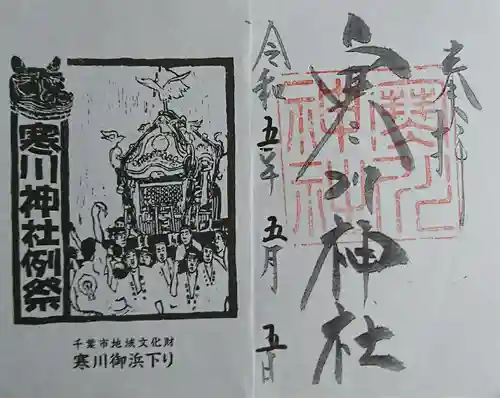 奉拝
寒川神社
令和五年五月五日
寒川神社
寒川神社例祭
千葉市地域文化財
寒川御浜下り